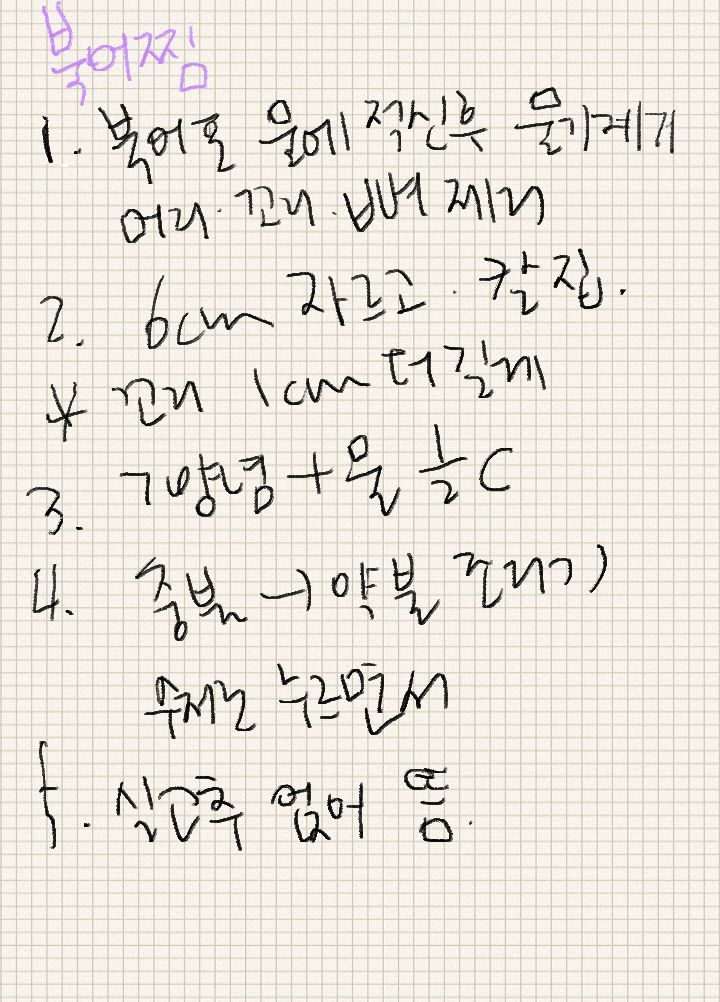 북어찜
1. 북어를 물에 적신후 물기제거
머리·꼬리·뼈 제거
2. 6cm 자르고·칼집.
* 꼬리 1cm 더길게
3. 양념+물 ½C
4. 중불→약불
누르면서
5. 실고추 얹어 뜸.